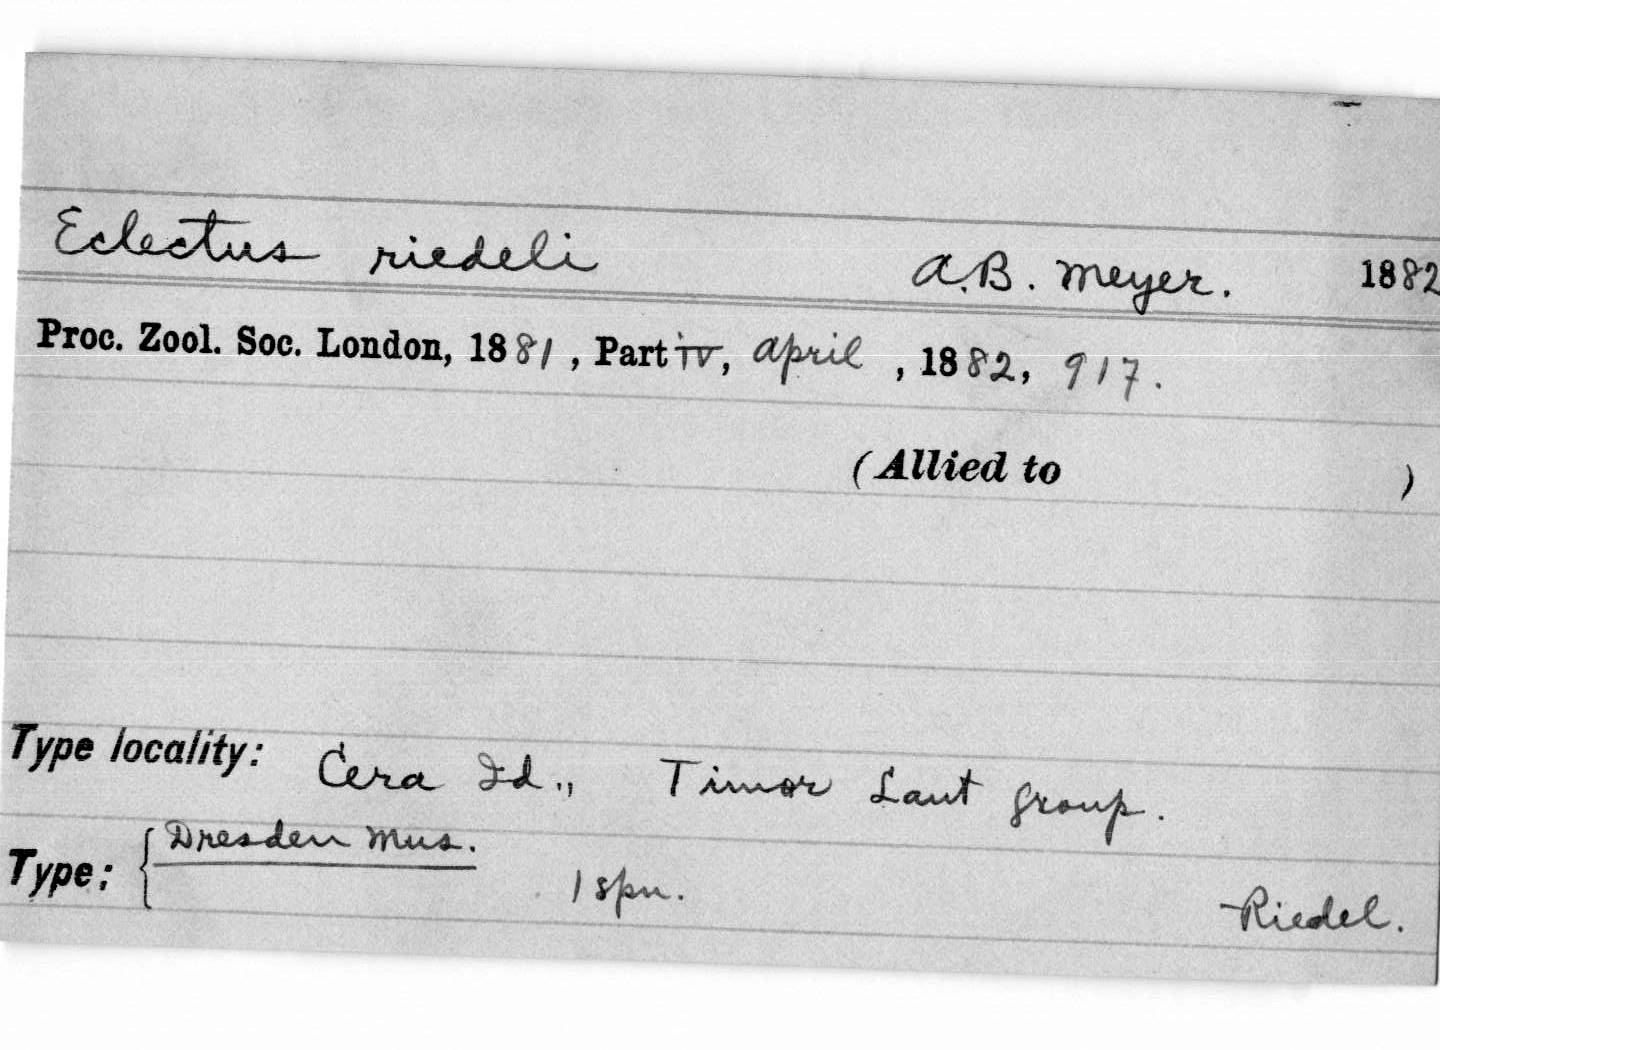 Eclectus riedeli A.B. Meyer. 1882
Proc. Zool. Soc. London, 1881, Part IV, April, 1882, 917.
(Allied to )
Type locality: Cera Id., Timor Laut group.
Type: { Dresden Mus.
1 spn. Riedel.